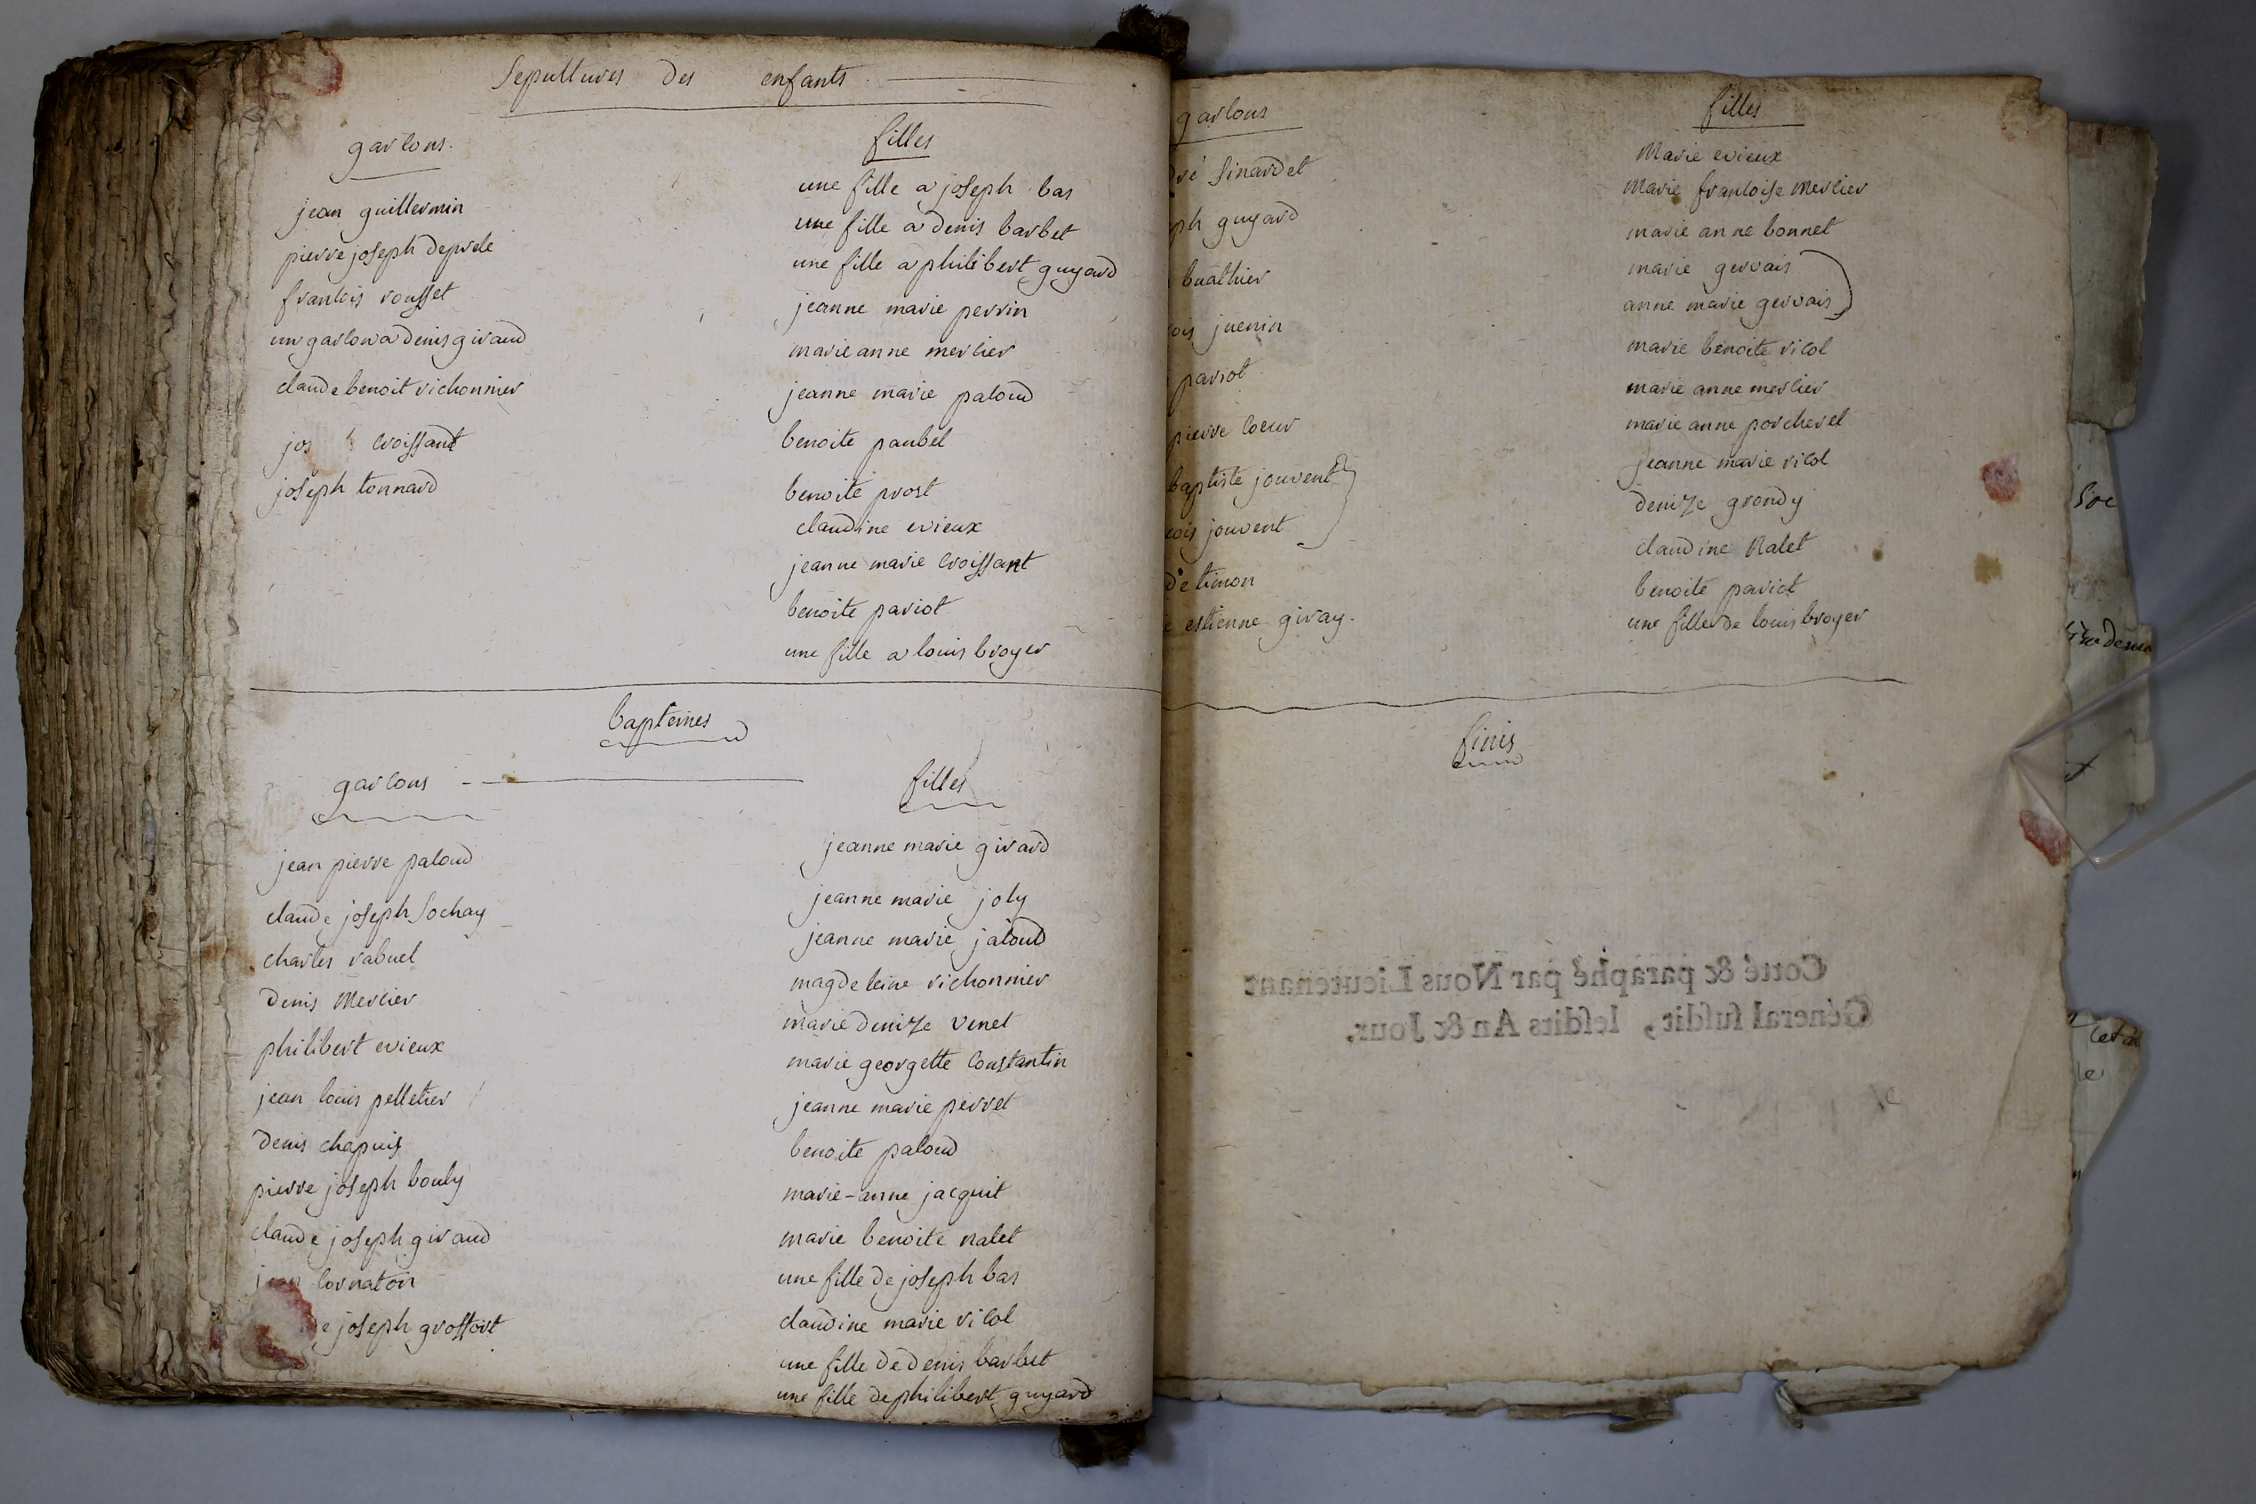 Sepultures des enfants
garcons.
jean guillermin
pierre joseph deprele
francois rousset
un garcon a denis giraud
claude benoit richonnier
jos croissant
joseph tonnard
filles
une fille a joseph bas
une fille a denis barbet
une fille a philibert guyard
jeanne marie perrin
marie anne mercier
jeanne marie paloud
benoite paubel
benoite prost
claudine evieux
jeanne marie croissant
benoite pariot
une fille a louis broyer
baptemes
garcons
jean pierre paloud
claude joseph sochay
charles rabuel
denis Mercier
philibert evieux
jean louis pelletier
denis chapuis
pierre joseph bouly
claude joseph giraud
jean cornaton
joseph grossort
filles
jeanne marie girard
jeanne marie joly
jeanne marie jaloud
magdeleine richonnier
marie denize venet
marie georgette constantin
jeanne marie perret
benoite paloud
marie-anne jacquit
marie benoite nalet
une fille de joseph bas
claudine marie ricol
une fille de denis barbet
une fille de philibert guyard
garcons
dré sinardet
ph guyard
buathier
ois juenin
pariot
pierre coeur
baptiste jouvent
cois jouvent
de timon
e estienne giray.
filles
Marie evieux
Marie francoise Mercier
marie anne bonnet
marie gervais
anne marie gervais
marie benoite ricol
marie anne mercier
marie anne porcheret
jeanne marie ricol
denize grondy
claudine Nalet
benoite pariot
une fille de louis broyer
finis
Cotté & paraphé par Nous Lieutenant
Général susdit, lesdits An & Jour.